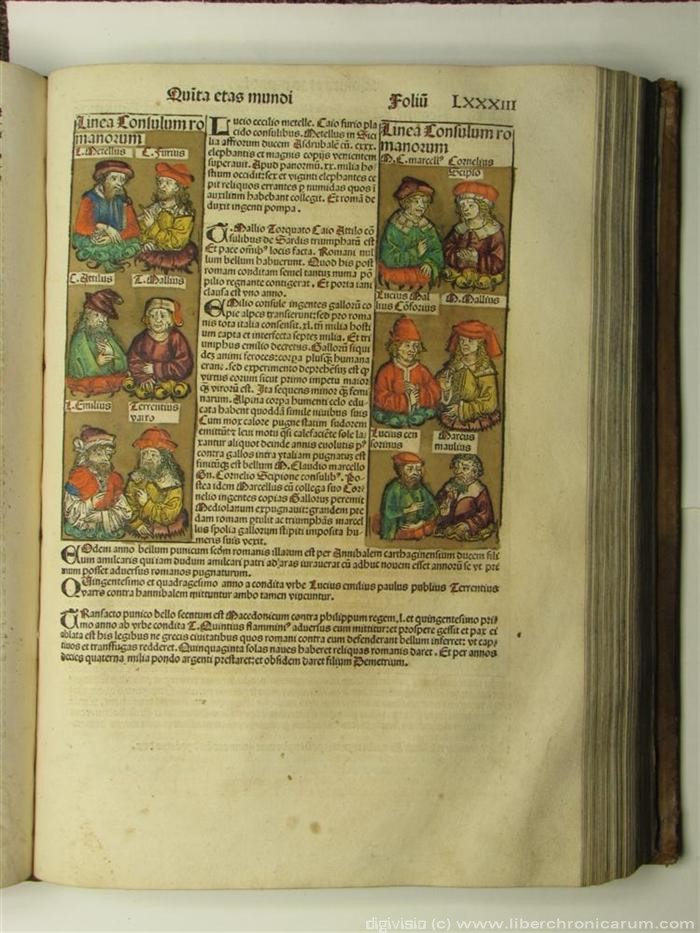 Quīta etas mundi
Foliū LXXXIII
Linea Consulum ro
manorum
L. Metellus C. Furius
C. Attilus T. Mallius
L. Emilius Terrentius
varro
Lucio cecilio metelle. Caio furio pla
cido consulibus. Metellus in Sici
lia affrorum ducem Asdrubalē cū. cxxx.
elephantis et magnis copijs venientem
superauit. Apud panormū. xx. milia ho-
stium occidit: sex et viginti elephantes ce
pit reliquos errantes p numidas quos ī
auxilium habebant collegit. Et romā de
duxit ingenti pompa.
T. Mallio Torquato Caio Attilo cō
sulibus de Sardis triumphatū est
Et pace om̄ibꝰ locis facta. Romani nul
lum bellum habuerunt. Quod his post
romam conditam semel tantuꝫ numa pō
pilio regnante contigerat. Et porta iani
clausa est vno anno.
EMilio consule ingentes galloꝝ co
pie alpes transierunt: sed pro roma
nis tota italia consensit. xl. tn̄ milia hostiū
um capta et interfecta septeꝫ milia. Et tri
umphus emilio decretus. Galloꝝ siqui
deꝫ animi feroces: corpa plusqꝫ humana
erant. sed experimento dephēsuꝫ est qꝫ
virtus eorum sicut primo impetu maior
qꝫ viroꝝ est. Ita sequens minor qꝫ femi
narum. Alpina corpa humenti celo edu
cata habent quoddā simile niuibus suis
Cum mox calore pugne statim sudorem
emittūt: et leui motu qꝫi calefacte sole la-
xantur aliquot deinde annis euolutis p
contra gallos intra ytaliam pugnatuꝫ est
finitūqꝫ est bellum M. Claudio marcello
Gn. Cornelio Scipione consulibꝰ. Po-
stea idem Marcellus cū collega suo Cor
nelio ingentes copias Galloꝝ peremit
Mediolanum expugnauit: grandem pre
dam romam ptulit ac triumphās marcel
lus spolia gallorum stipiti imposita hu
meris suis vexit.
Linea Consulum ro
manorum
M. C. marcellꝰ Cornelius
Scipio
Lucius Mal
lius Cēsorius M. Mallius
Lucius cen
sorinus Marcus
maulius
EOdem anno bellum punicum scdm romanis illatum est per Annibalem carthaginensium ducem fili
um amilcaris qui iam dudum amilcari patri ad aras iurauerat cū adhuc nouem esset annorū se vt pri
mum posset aduersus romanos pugnaturum.
QUingentesimo et quadragesimo anno a condita vrbe Lucius emilius paulus publius Terrentius
varro contra hannibalem mittuntur ambo tamen vincuntur.
TRansacto punico bello secutum est Macedonicum contra philippum regem. l. et quingentesimo pri
mo anno ab vrbe condita T. Quintius flamminꝰ aduersus eum mittitur: et prospere gessit et pax ei
oblata est his legibus ne grecis ciuitatibus quos romani contra eum defenderant bellum inferret: vt cap
tiuos et transfugas redderet. Quinquaginta solas naues haberet reliquas romanis daret. Et per annos
decies quaterna milia pondo argenti prestaret: et obsidem daret filium Demetrium.
digivisio (c) www.liberchronicarum.com